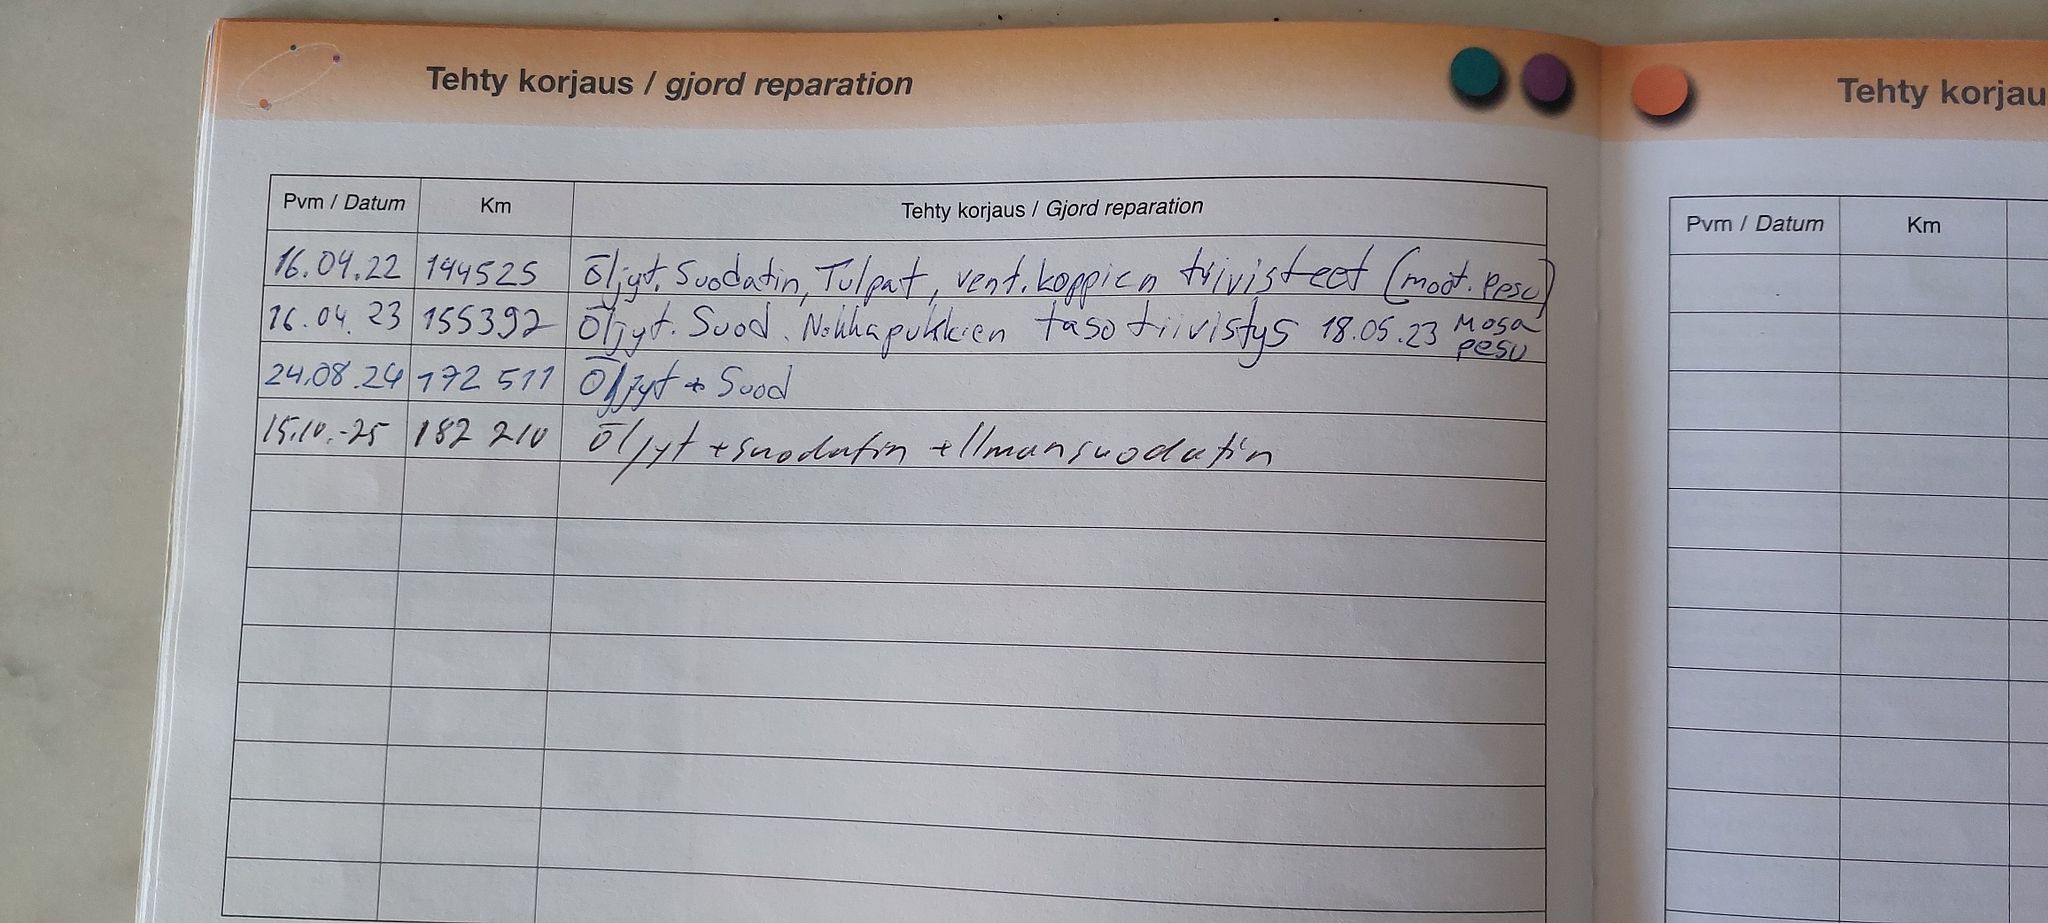 Tehty korjaus / gjord reparation
Pvm / Datum Km Tehty korjaus / Gjord reparation
16.04.22 144525 Öljyt. Suodatin, Tulpat, vent.koppien tiivisteet (moot. pesu)
16.04.23 155392 Öljyt. Suod. Nokkapukkien tasotiivistys 18.05.23 Mosa pesu
24.08.24 172 511 Öljyt + Suod
15.10.-25 182 210 Öljyt + suodatin + Ilmansuodatin
Tehty korjau
Pvm / Datum Km